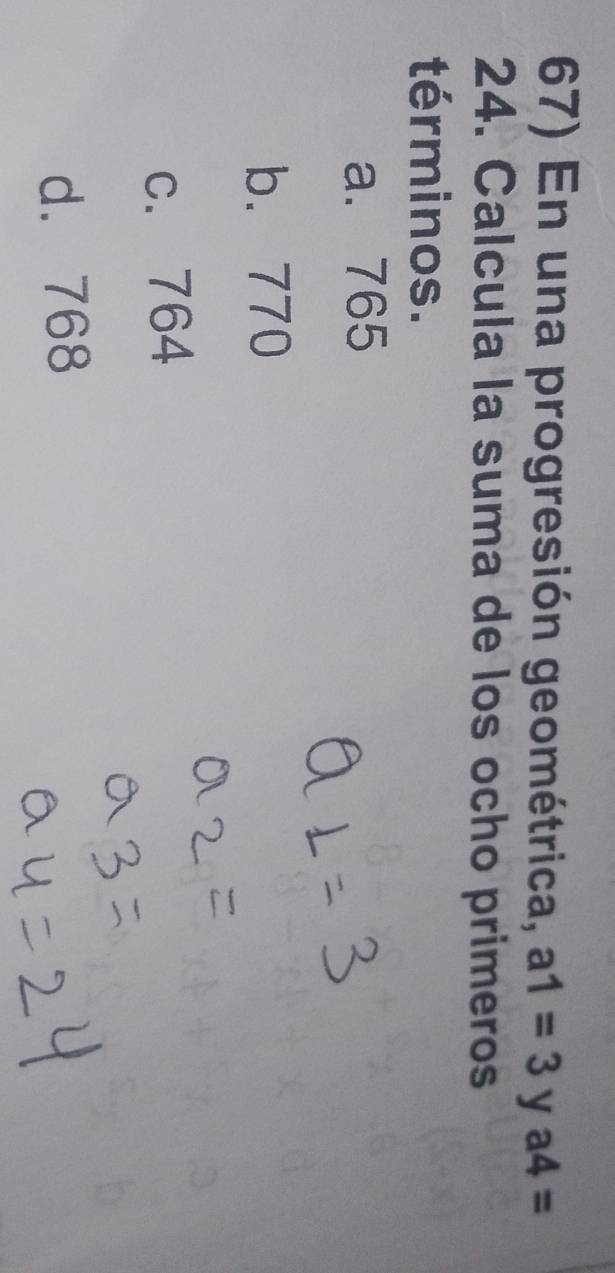 67) En una progresión geométrica, a1 = 3 y a4 =
24. Calcula la suma de los ocho primeros
términos.
a. 765
b. 770
c. 764
d. 768
a1 = 3
a2 =
a3 =
a4 = 24